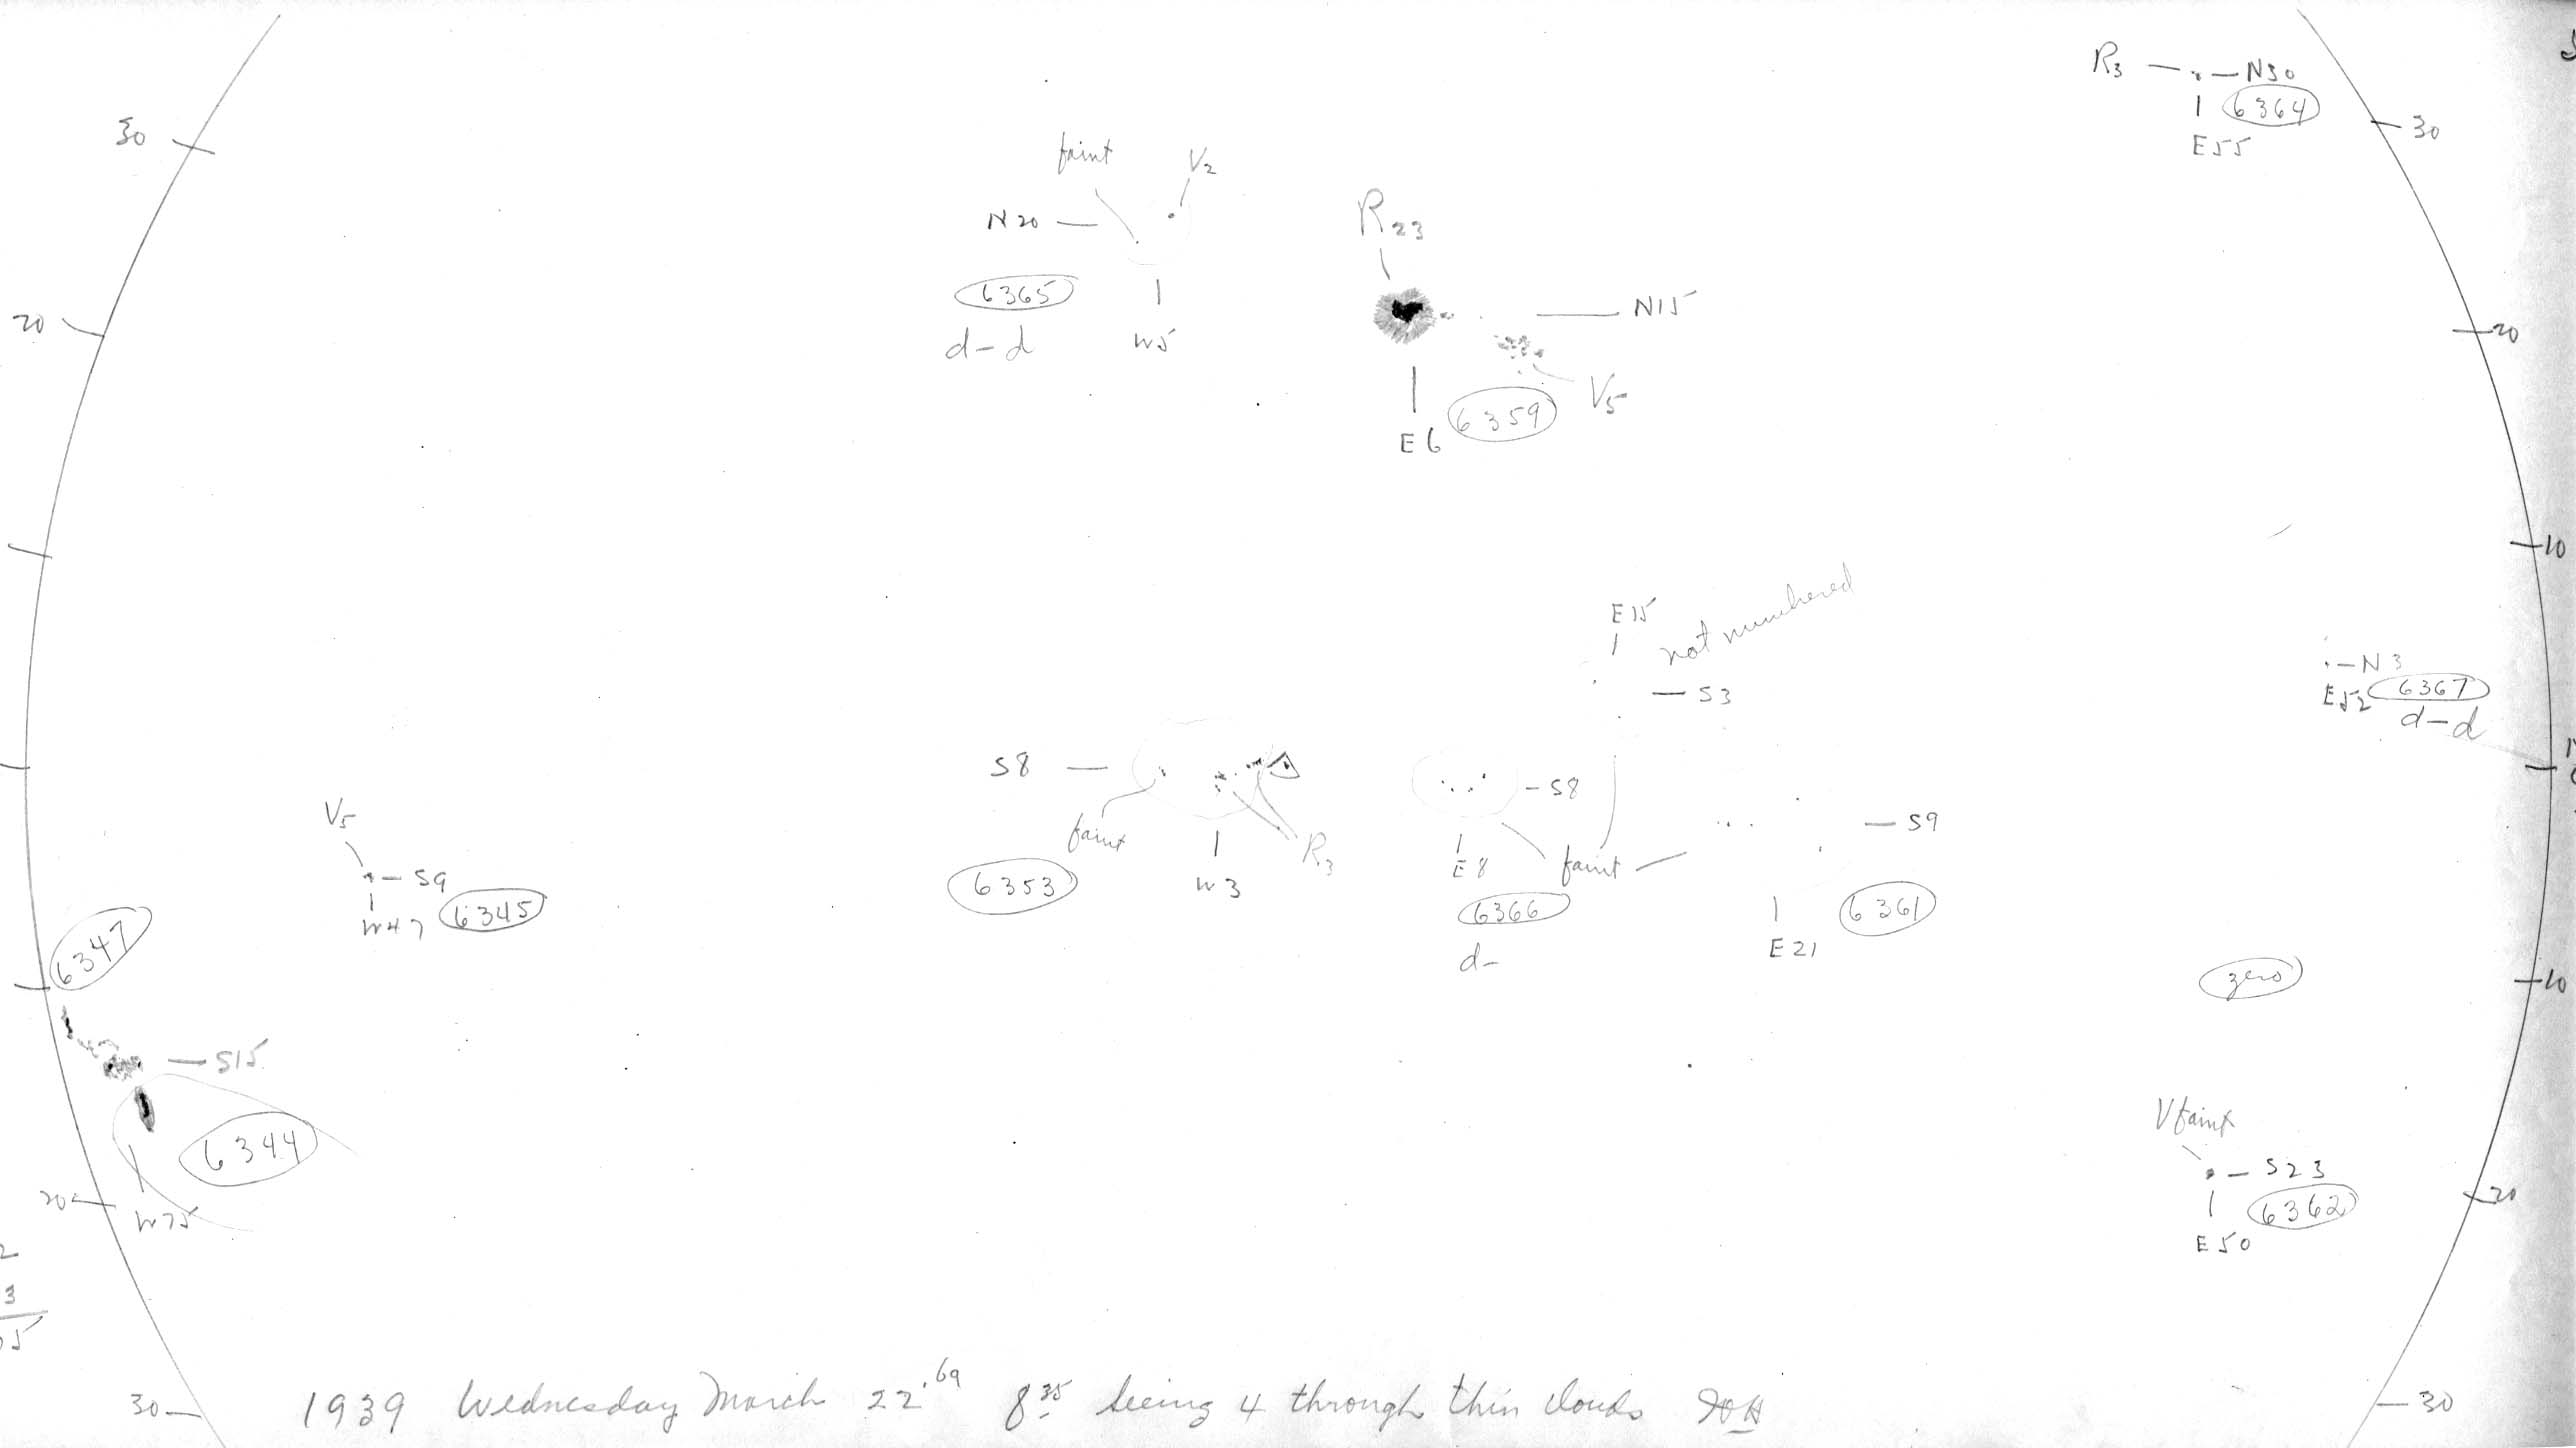 R3 — N30
6364
E55
30
30
faint
V2
N20 —
R23
6365
W5
d-d
— N15
20
20
V5
6359
E6
10
E15
not numbered
— S3
— N3
E52
6367
d-d
S8 —
faint
R3
W3
6353
— S8
E8
faint —
6366
d-
— S9
E21
6361
V5
— S9
W47
6345
6347
zero
10
— S15
6344
W75
20
V faint
— S23
6362
E50
20
2
3
30
30
1939 Wednesday March 22.69 8 35 seeing 4 through thin clouds